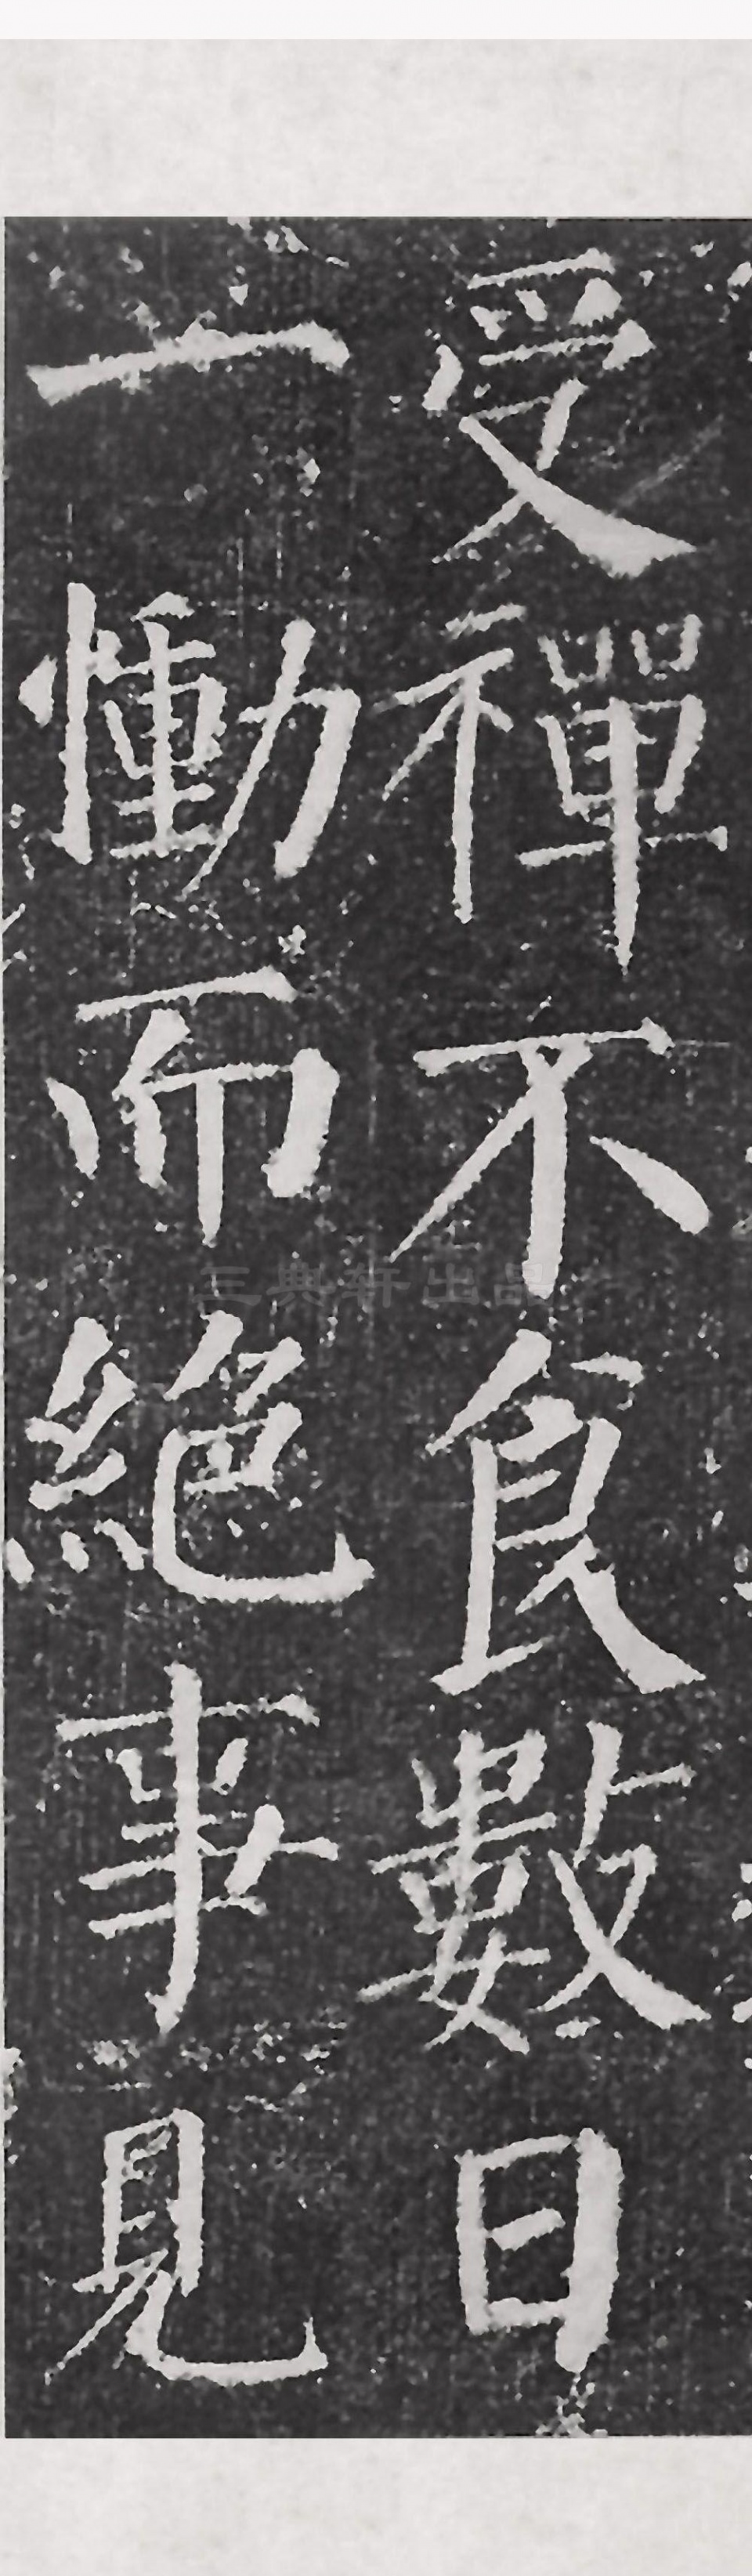 受禪不食數日
一慟而絕事見
三典轩出品